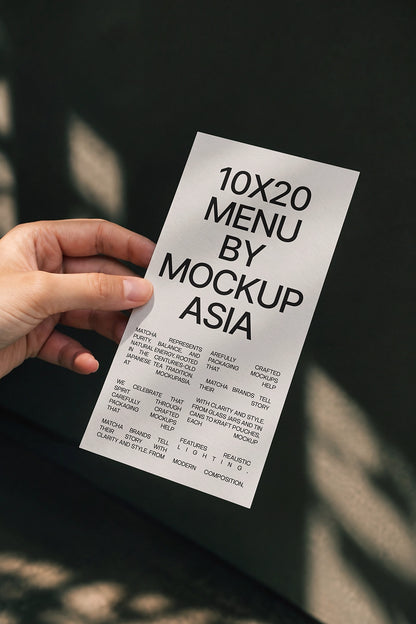 10X20
MENU
BY
MOCKUP
ASIA
MATCHA REPRESENTS
PURITY, BALANCE, AND
NATURAL ENERGY. ROOTED
IN THE CENTURIES-OLD
JAPANESE TEA TRADITION
AT MOCKUPASIA,
WE CELEBRATE THAT
SPIRIT THROUGH
CAREFULLY CRAFTED
PACKAGING MOCKUPS
THAT HELP
MATCHA BRANDS TELL
THEIR STORY WITH
CLARITY AND STYLE. FROM
AREFULLY CRAFTED
PACKAGING MOCKUPS
THAT HELP
MATCHA BRANDS TELL
THEIR STORY
WITH CLARITY AND STYLE.
FROM GLASS JARS AND TIN
CANS TO KRAFT POUCHES,
EACH MOCKUP
FEATURES REALISTIC
LIGHTING,
MODERN COMPOSITION,